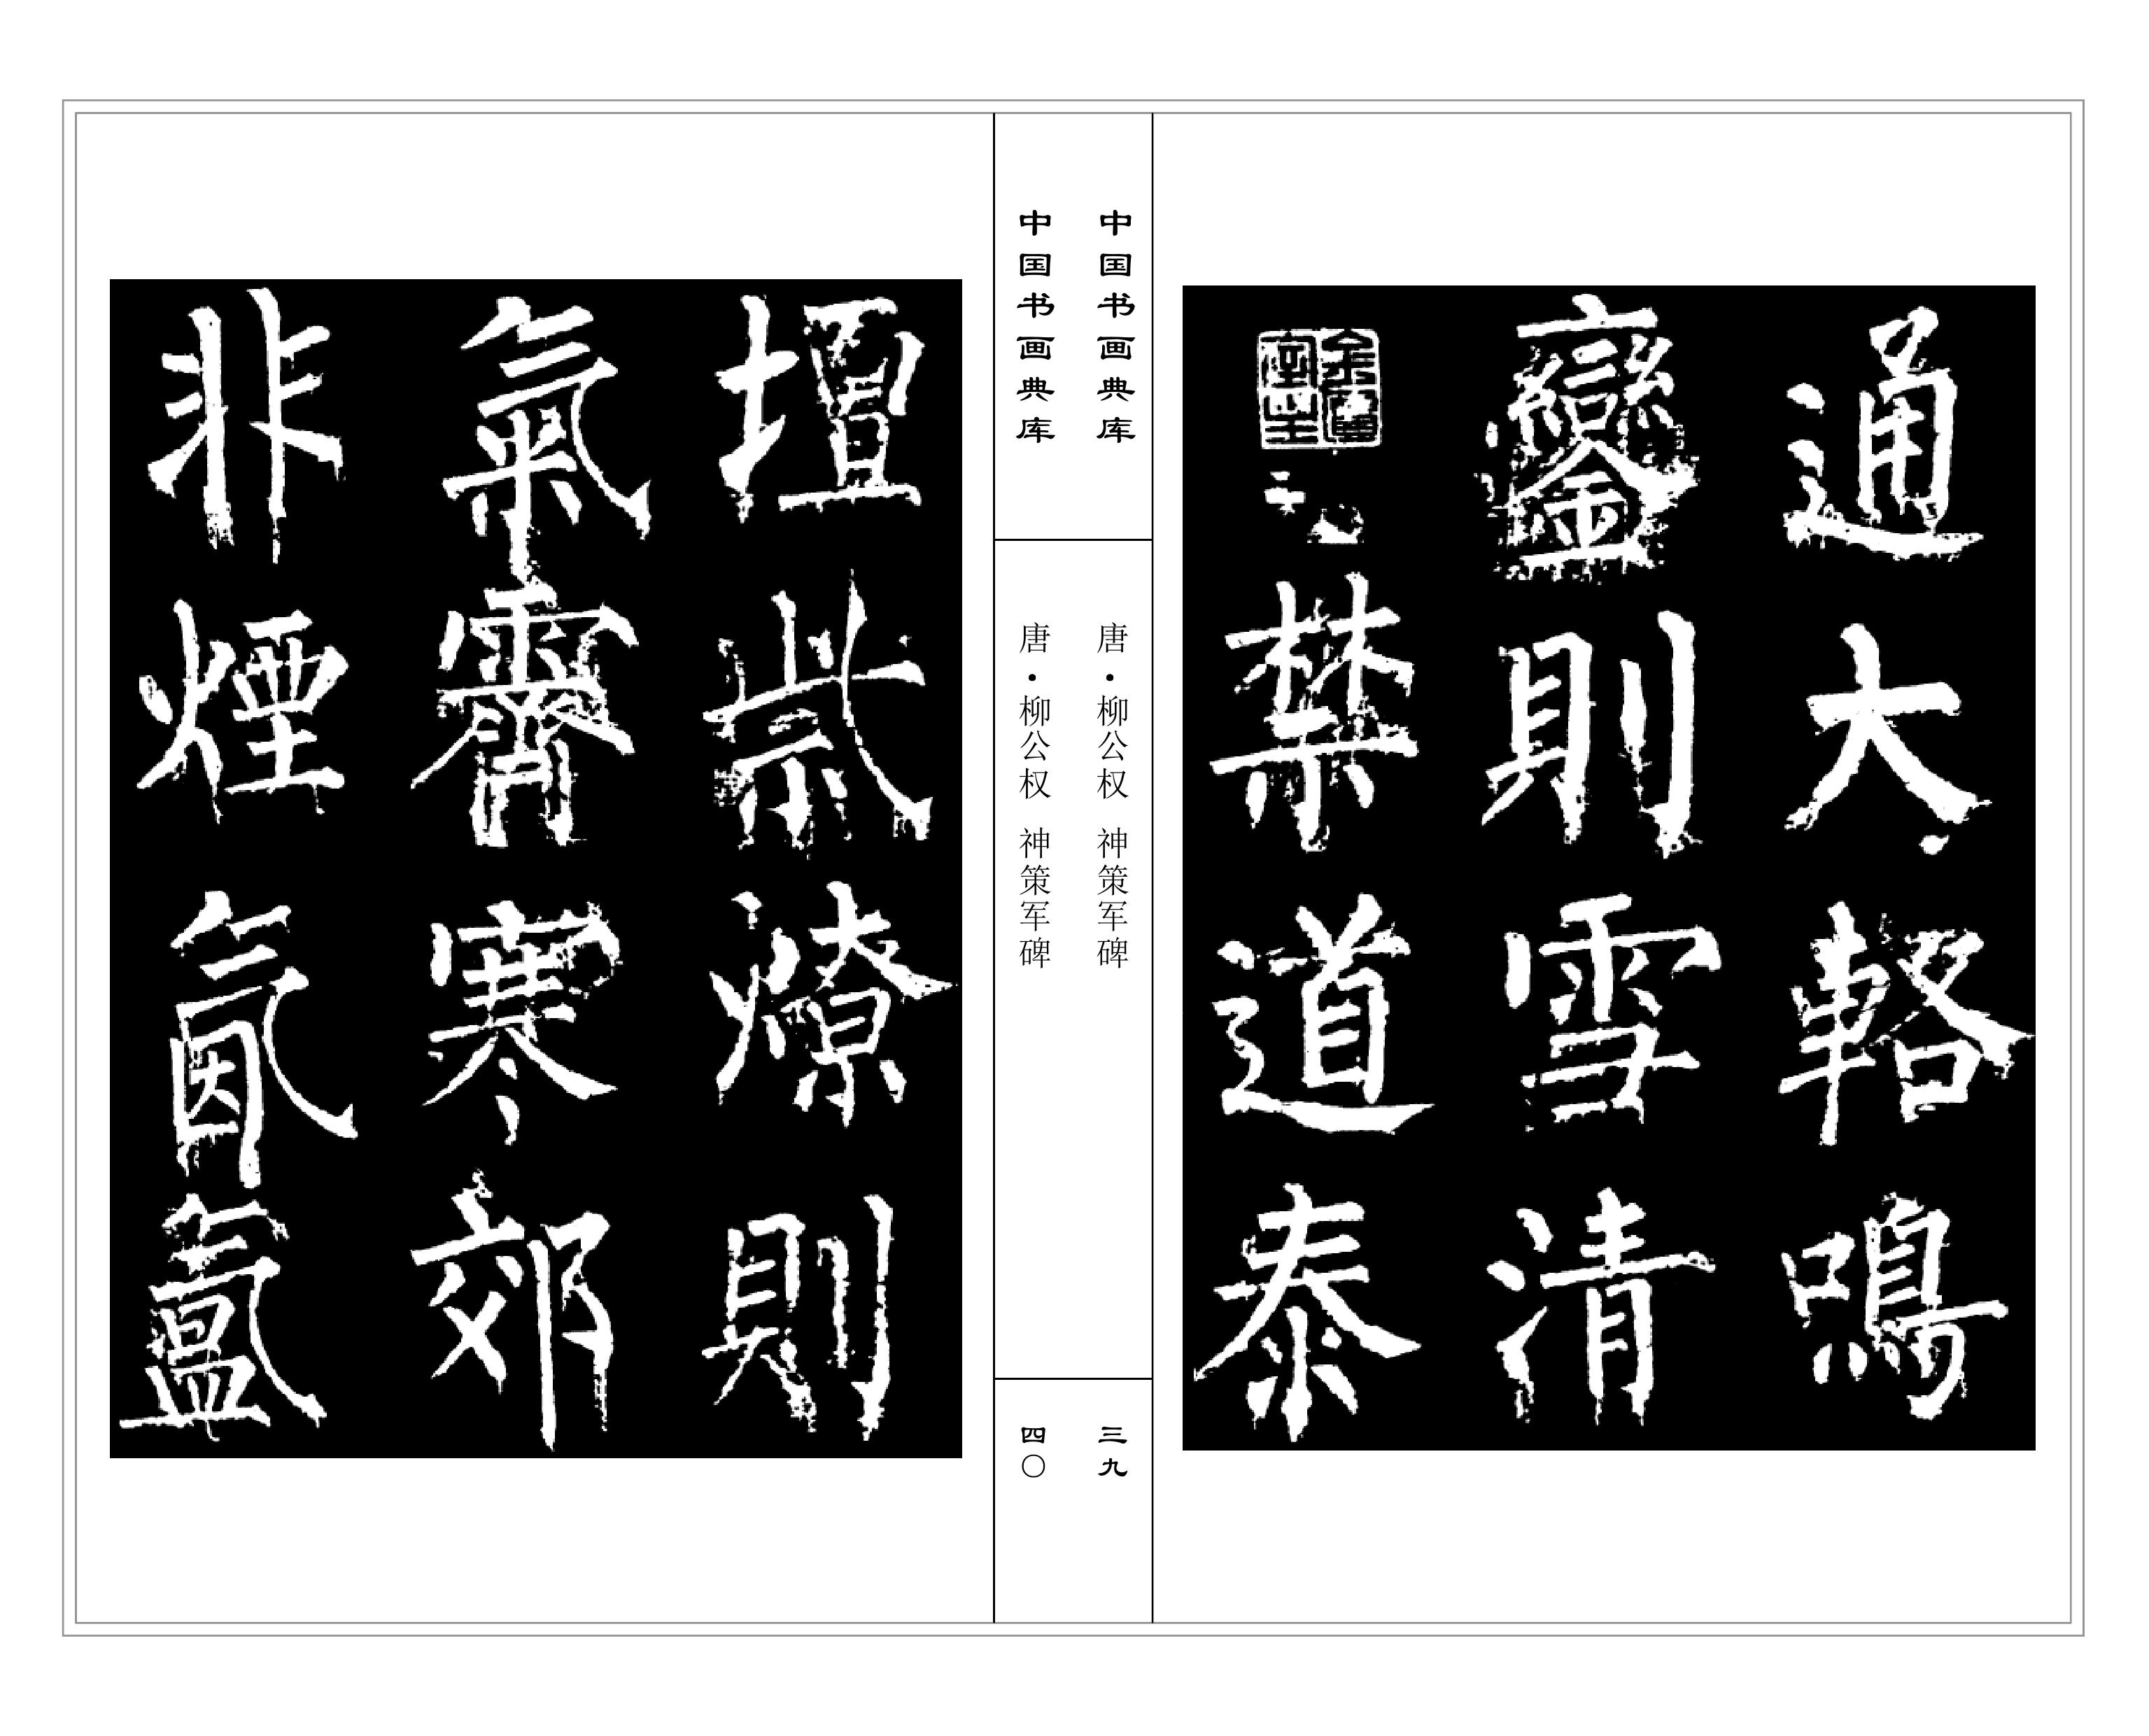 通大輅鳴
鑾則雪清
禁道泰
中国书画典库
唐·柳公权 神策军碑
三九
中国书画典库
唐·柳公权 神策军碑
四〇
壇祡燎則
氣霽寒郊
非煙氤氳